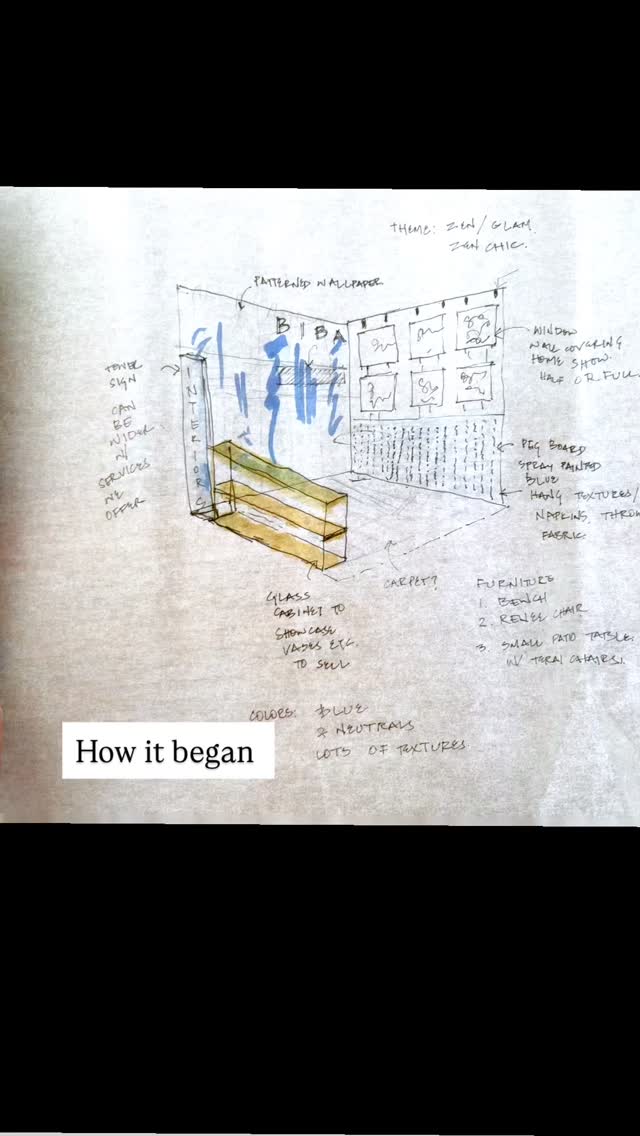 THEME: ZEN/GLAM
ZEN CHIC.
PATTERNED WALLPAPER
BIBA
INTERIORS
TOWER
SIGN
CAN
BE
WIDER
W/
SERVICES
WE
OFFER
WINDOW
WALL COVERING
HOME SHOW.
HALF OR FULL
PEG BOARD
SPRAY PAINTED
BLUE
HANG TEXTURES/
NAPKINS, THROW
FABRIC.
CARPET?
GLASS
CABINET TO
SHOWCASE
VASES ETC.
TO SELL
FURNITURE
1. BENCH
2. RENEE CHAIR
3. SMALL PATIO TABLE
W/ CHAIRS).
COLORS: BLUE
& NEUTRALS
LOTS OF TEXTURES
How it began